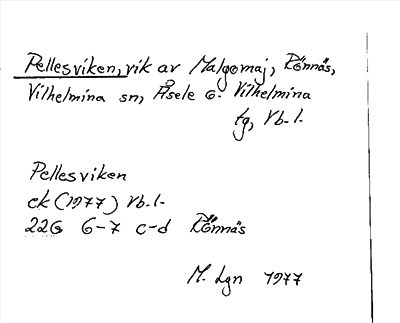 Pellesviken, vik av Malgomaj, Rönnäs,
Vilhelmina sn, Åsele o. Vilhelmina
tg, Vb. l.
Pellesviken
ek (1977) Vb. l.
22G 6-7 c-d Rönnäs
M. Lgn 1977